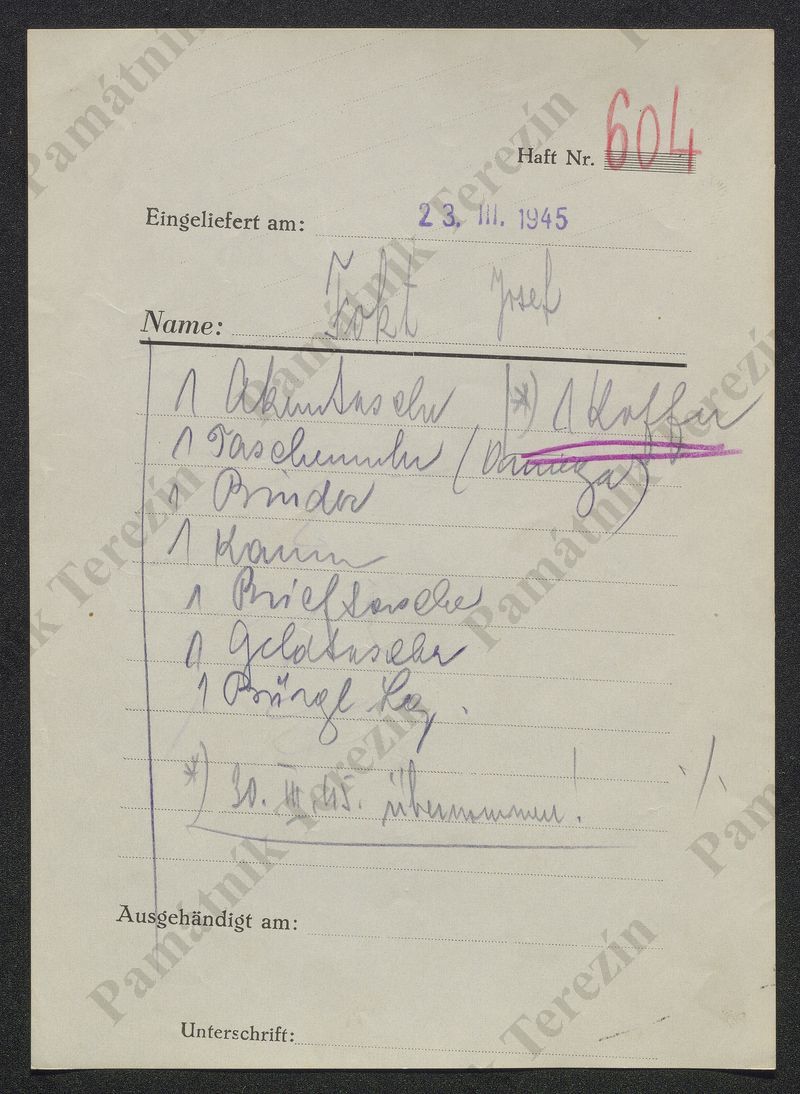 Haft Nr. 604
Eingeliefert am: 23. III. 1945
Name: Fokt Josef
1 Akentasche *) 1 Koffer
1 Taschenuhr (Omega)
1 Binder
1 Kamm
1 Brieftasche
1 Geldtasche
1 Bürgl Leg.
*) 30. III. 45. übernommen!
Ausgehändigt am:
Unterschrift:
Památník Terezín